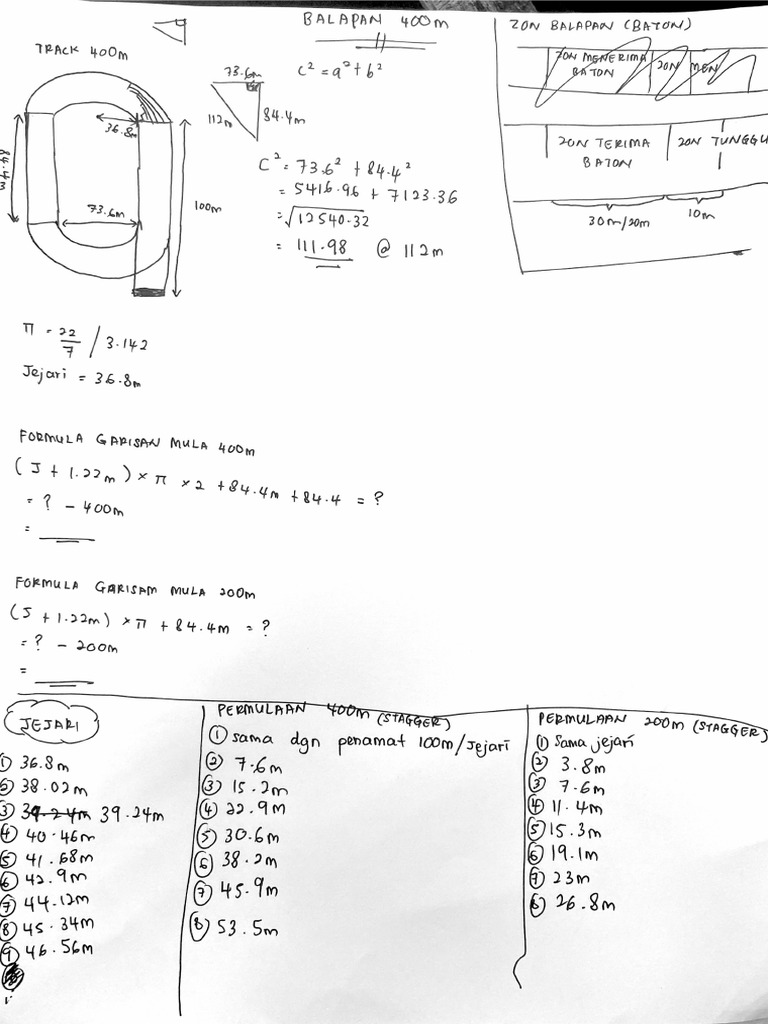 BALAPAN 400m
TRACK 400m
36.8m
84.4m
73.6m
100m
73.6m
112m
84.4m
c² = a² + b²
C² = 73.6² + 84.4²
= 5416.96 + 7123.36
= √12540.32
= 111.98 @ 112m
ZON BALAPAN (BATON)
ZON MENERIMA
BATON
ZON MEN
ZON TERIMA
BATON
ZON TUNGGU
30m/20m
10m
π = 22/7 / 3.142
Jejari = 36.8m
FORMULA GARISAN MULA 400m
(J + 1.22m) × π × 2 + 84.4m + 84.4 = ?
= ? - 400m
=
FORMULA GARISAM MULA 200m
(J + 1.22m) × π + 84.4m = ?
= ? - 200m
=
JEJARI
① 36.8m
② 38.02m
③ 39.24m 39.24m
④ 40.46m
⑤ 41.68m
⑥ 42.9m
⑦ 44.12m
⑧ 45.34m
⑨ 46.56m
PERMULAAN 400m (STAGGER)
① sama dgn penamat 100m/Jejari
② 7.6m
③ 15.2m
④ 22.9m
⑤ 30.6m
⑥ 38.2m
⑦ 45.9m
⑧ 53.5m
PERMULAAN 200m (STAGGER)
① Sama jejari
② 3.8m
③ 7.6m
④ 11.4m
⑤ 15.3m
⑥ 19.1m
⑦ 23m
⑧ 26.8m